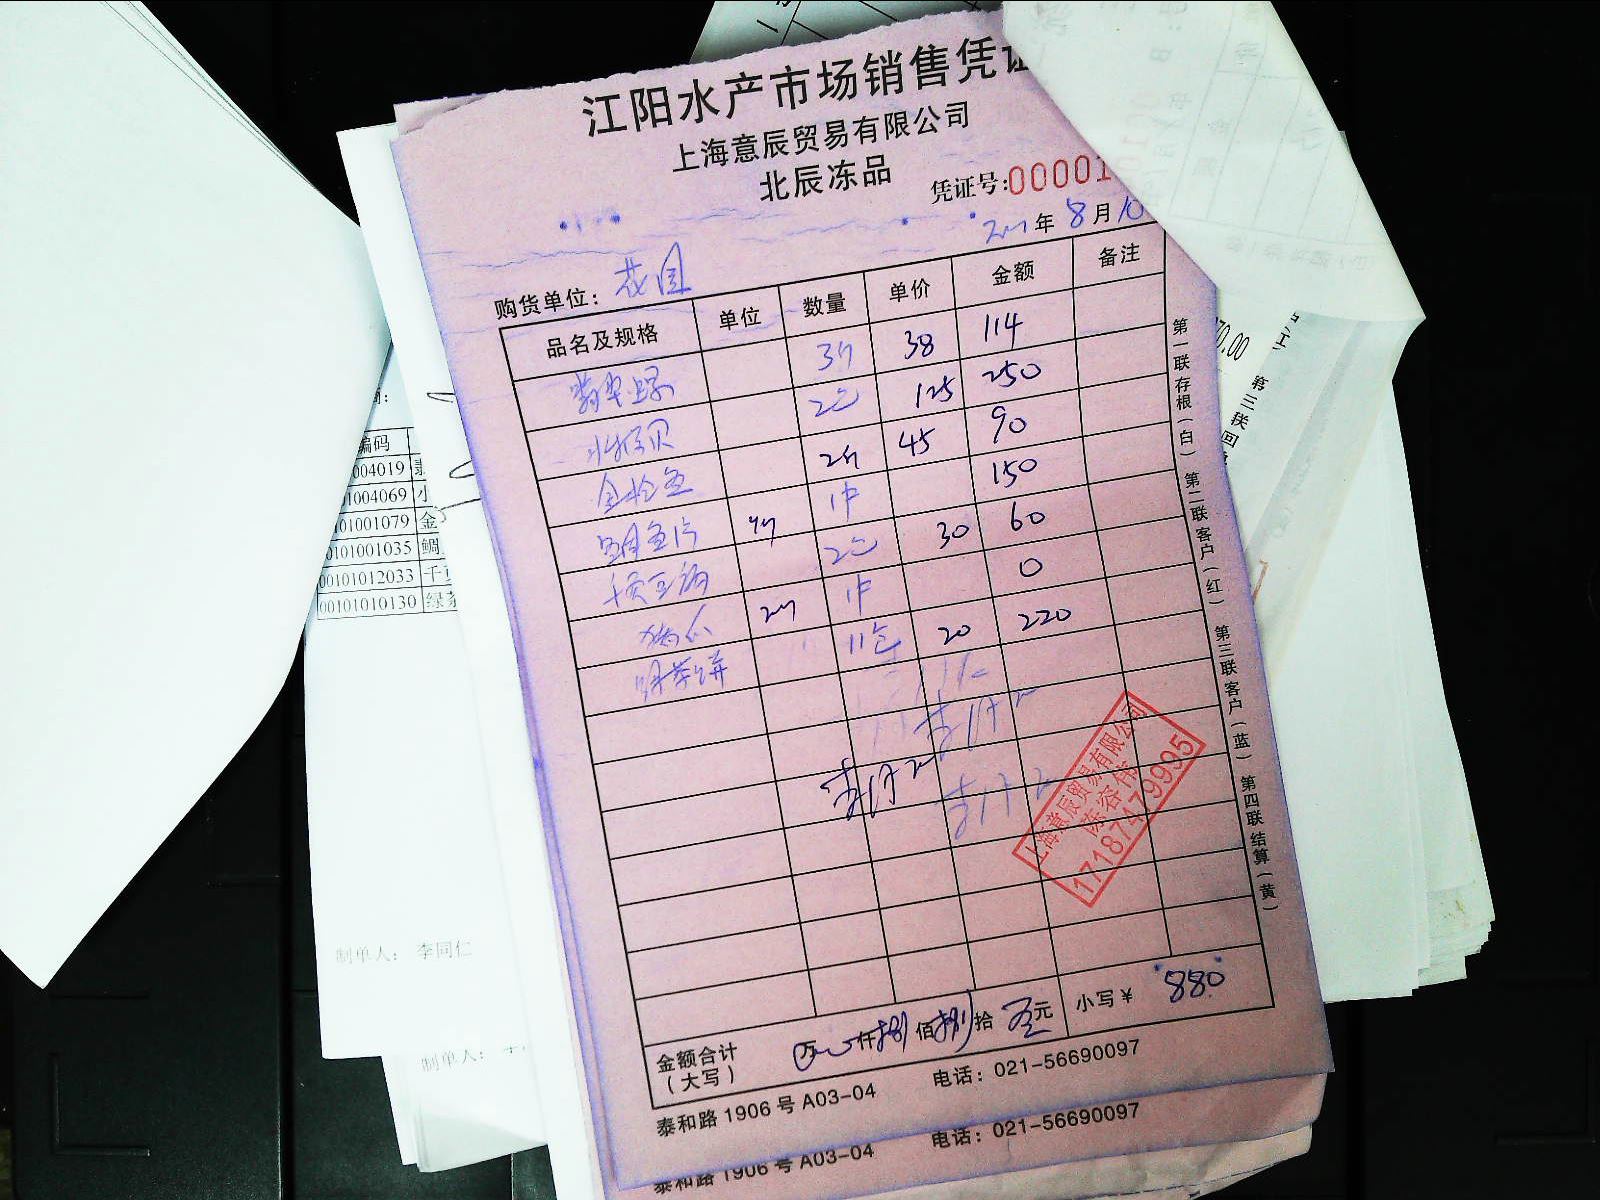 江阳水产市场销售凭证
上海意辰贸易有限公司
北辰冻品
凭证号:00001
年 8 月 10
购货单位: 花园
品名及规格 单位 数量 单价 金额 备注
翡翠螺 3斤 38 114
2包 125 250
金枪鱼 2斤 45 90
鲷鱼片 1件 150
千页豆腐 2包 30 60
1件 0
绿茶饼 11包 20 220
上海意辰贸易有限公司
陈容伟
17187479995
第一联存根(白) 第二联客户(红) 第三联客户(蓝) 第四联结算(黄)
金额合计 万 仟 捌 佰 捌 拾 元 小写¥ 880
(大写)
泰和路1906号A03-04 电话:021-56690097
泰和路1906号A03-04 电话:021-56690097
编码
004019
01004069 小
01001079 金
00101001035 鲷
00101012033 千
00101010130 绿茶
制单人: 李同仁
制单人:
70.00
第三联回